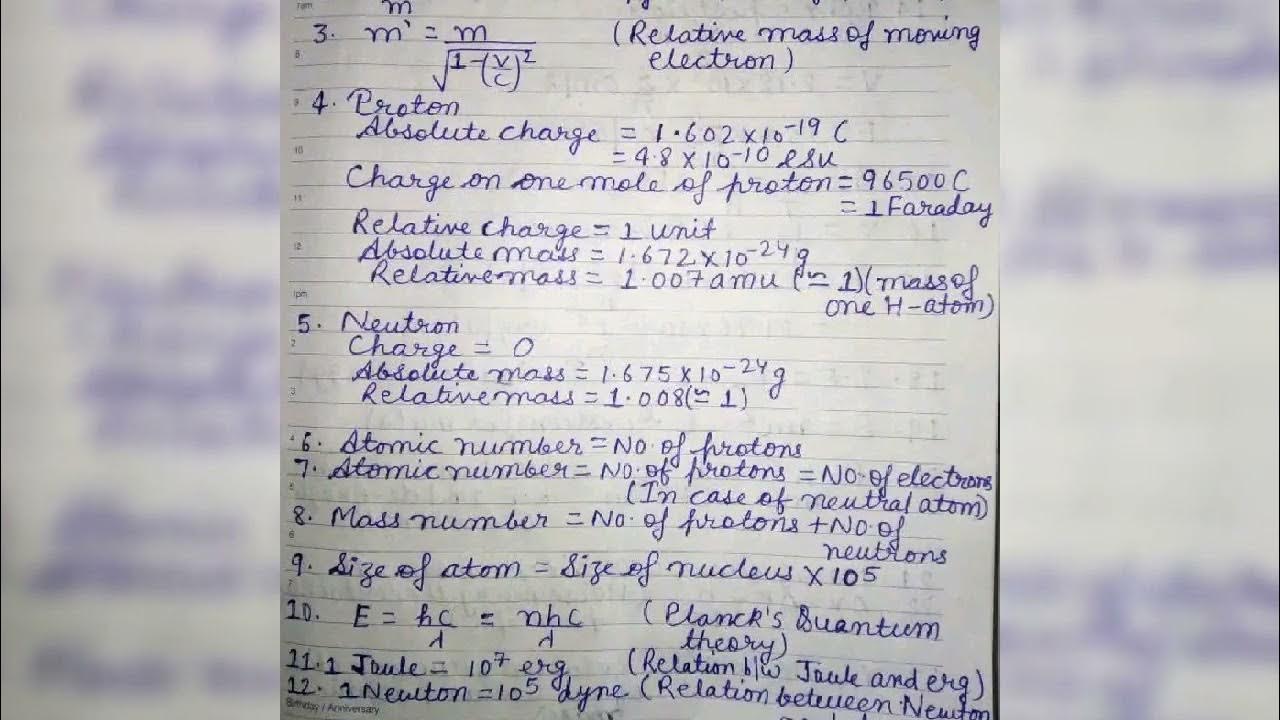 7am
m
3. m' = m (Relative mass of moving
8 √1-(v/c)² electron)
9 4. Proton
Absolute charge = 1.602×10⁻¹⁹ C
10 = 4.8×10⁻¹⁰ esu
Charge on one mole of proton = 96500C
11 = 1 Faraday
Relative charge = 1 unit
12 Absolute mass = 1.672×10⁻²⁴g
Relative mass = 1.007amu (≃ 1)(mass of
1pm one H-atom)
5. Neutron
2 Charge = 0
Absolute mass = 1.675×10⁻²⁴g
3 Relative mass = 1.008(≃ 1)
6. Atomic number = NO. of protons
7. Atomic number = NO. of protons = NO. of electrons
(In case of neutral atom)
8. Mass number = NO. of protons + NO. of
6 neutrons
9. Size of atom = Size of nucleus × 10⁵
10. E = hc/λ = nhc/λ (Planck's Quantum
theory)
11. 1 Joule = 10⁷ erg (Relation b/w Joule and erg)
12. 1 Newton = 10⁵ dyne (Relation between Newton
Birthday / Anniversary